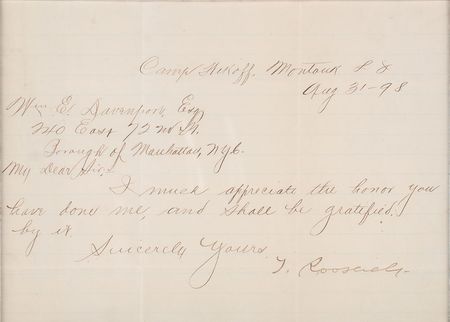 Camp Wikoff, Montauk L I
Aug 31-98
Wm E. Davenport, Esq
240 East 72nd St.
Borough of Manhattan, N.Y.C.
My Dear Sir;
I much appreciate the honor you
have done me, and shall be gratified.
by it
Sincerely Yours
T. Roosevelt